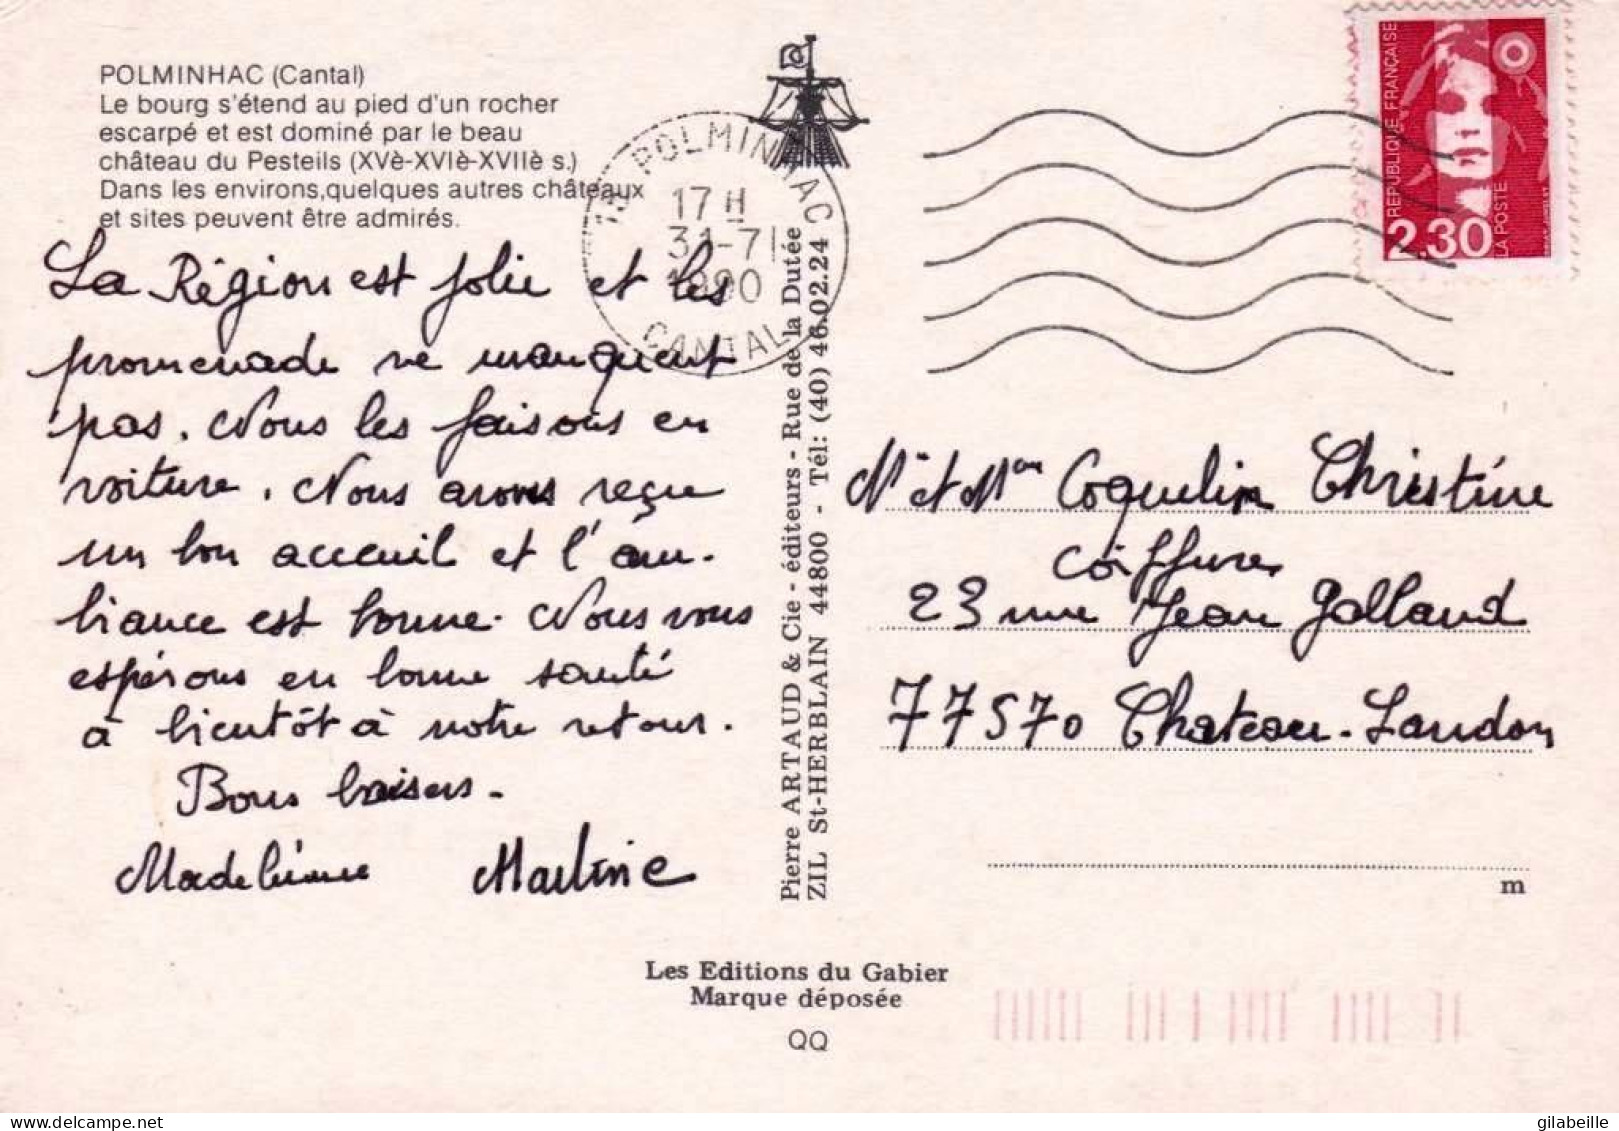 POLMINHAC (Cantal)
Le bourg s'étend au pied d'un rocher
escarpé et est dominé par le beau
château du Pesteils (XVè-XVIè-XVIIè s.)
Dans les environs,quelques autres châteaux
et sites peuvent être admirés.
La Région est jolie et les
promenade ne manquent
pas. Nous les faisons en
voiture. Nous avons reçu
un bon acceuil et l'am-
biance est bonne. Nous vous
espérons en bonne santé
à bientôt à notre retour.
Bons baisers.
Madeleine Martine
15 POLMINHAC
17 H
31-7
1990
CANTAL
Pierre ARTAUD & Cie - éditeurs - Rue de la Dutée
ZIL St-HERBLAIN 44800 - Tél: (40) 46.02.24
REPUBLIQUE FRANÇAISE
2.30
LA POSTE
Mr et Mme Coquelin Christine
Coiffure
23 rue Jean Galland
77570 Chateau-Landon
m
Les Editions du Gabier
Marque déposée
QQ
gilabeille